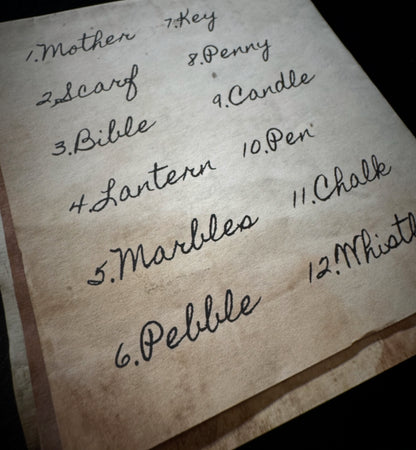 1.Mother
2.Scarf
3.Bible
4.Lantern
5.Marbles
6.Pebble
7.Key
8.Penny
9.Candle
10.Pen
11.Chalk
12.Whistl